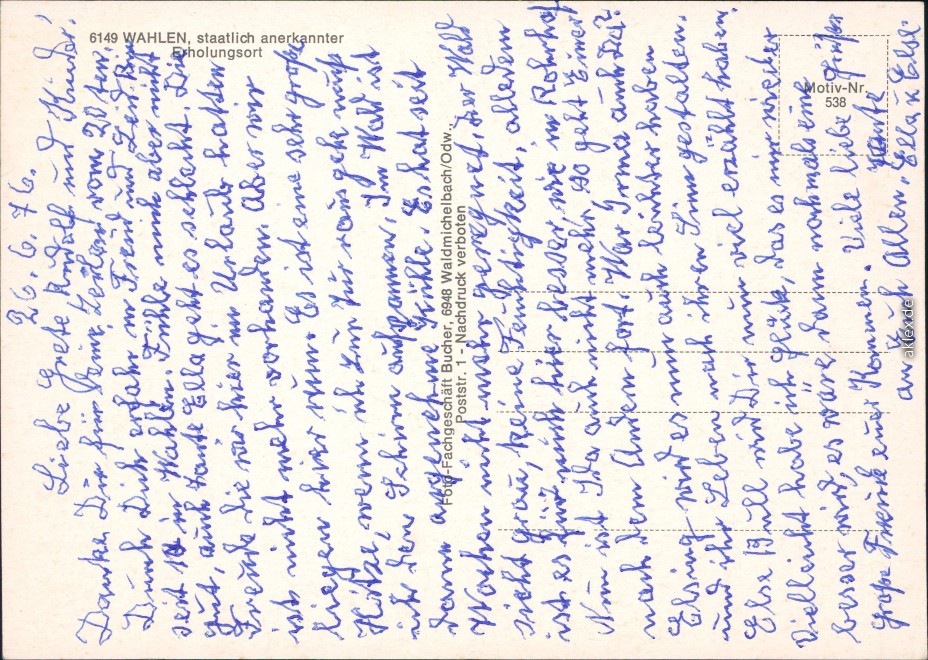 6149 WAHLEN, staatlich anerkannter
Erholungsort
Motiv-Nr.
538
Foto-Fachgeschäft Bucher, 6948 Waldmichelbach/Odw.
Poststr. 1 - Nachdruck verboten
26.6.76.
Liebe Grete Rudolf und Kinder.
Danke Dir für Deine Zeilen vom 20 ten.
Durch Dich erfahr ich Freud und Leid. Bin
seit in Wahlen. Fühle mich aber nicht
gut, auch Tante Ella geht es schlecht. Die
Freude die wir hier im Urlaub hatten
ist nicht mehr vorhanden. Aber wir
liegen hier rum. Es ist eine sehr große
Hitze, wenn ich zur Tür raus gehe muß
ich den Schirm aufspannen, Im Wald ist
dann angenehme Kühle. Es hat seit
Wochen nicht mehr geregnet, der Wald
sieht grau, keine Feuchtigkeit, alledem
ist es für mich hier besser wie im
Nun ist Ida auch nicht mehr so geht Einer
nach dem Andern fort. War Irma auch da?
Elsing wird es nun auch leichter haben
und ihr Leben nach ihren Sinn gestalten.
Else Büll wird Dir nun viel erzählt haben.
Vielleicht habe ich Glück, das es mir wieder
besser wird, es wäre dann nochmals eine
große Freude euer Kommen. Viele liebe Grüße
auch Allen, Ella u. Else
Tante
akpool.de